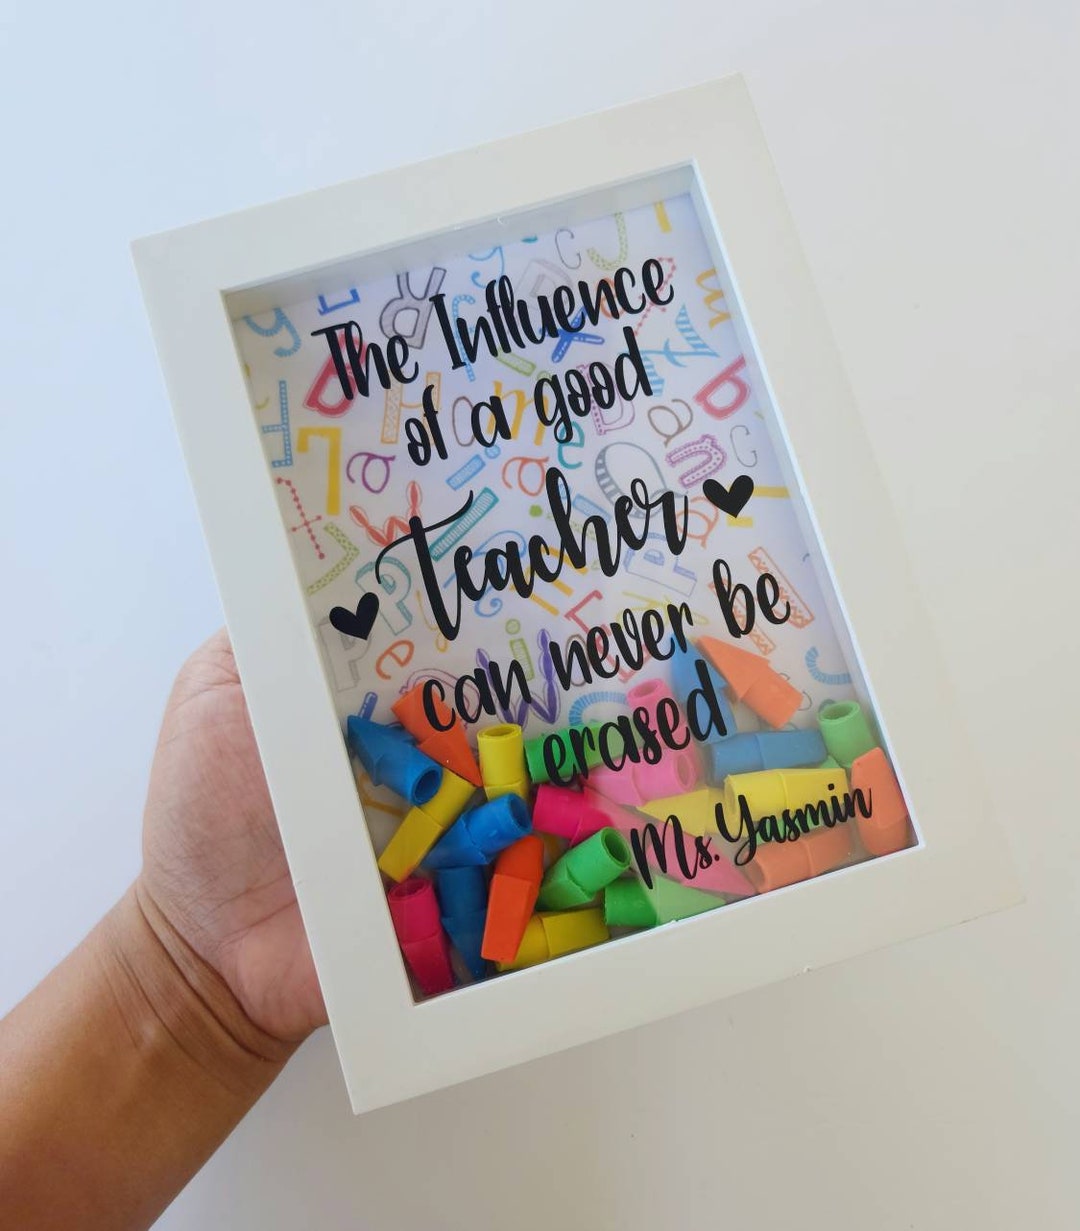 The Influence
of a good
Teacher
can never be
erased
Ms. Yasmin